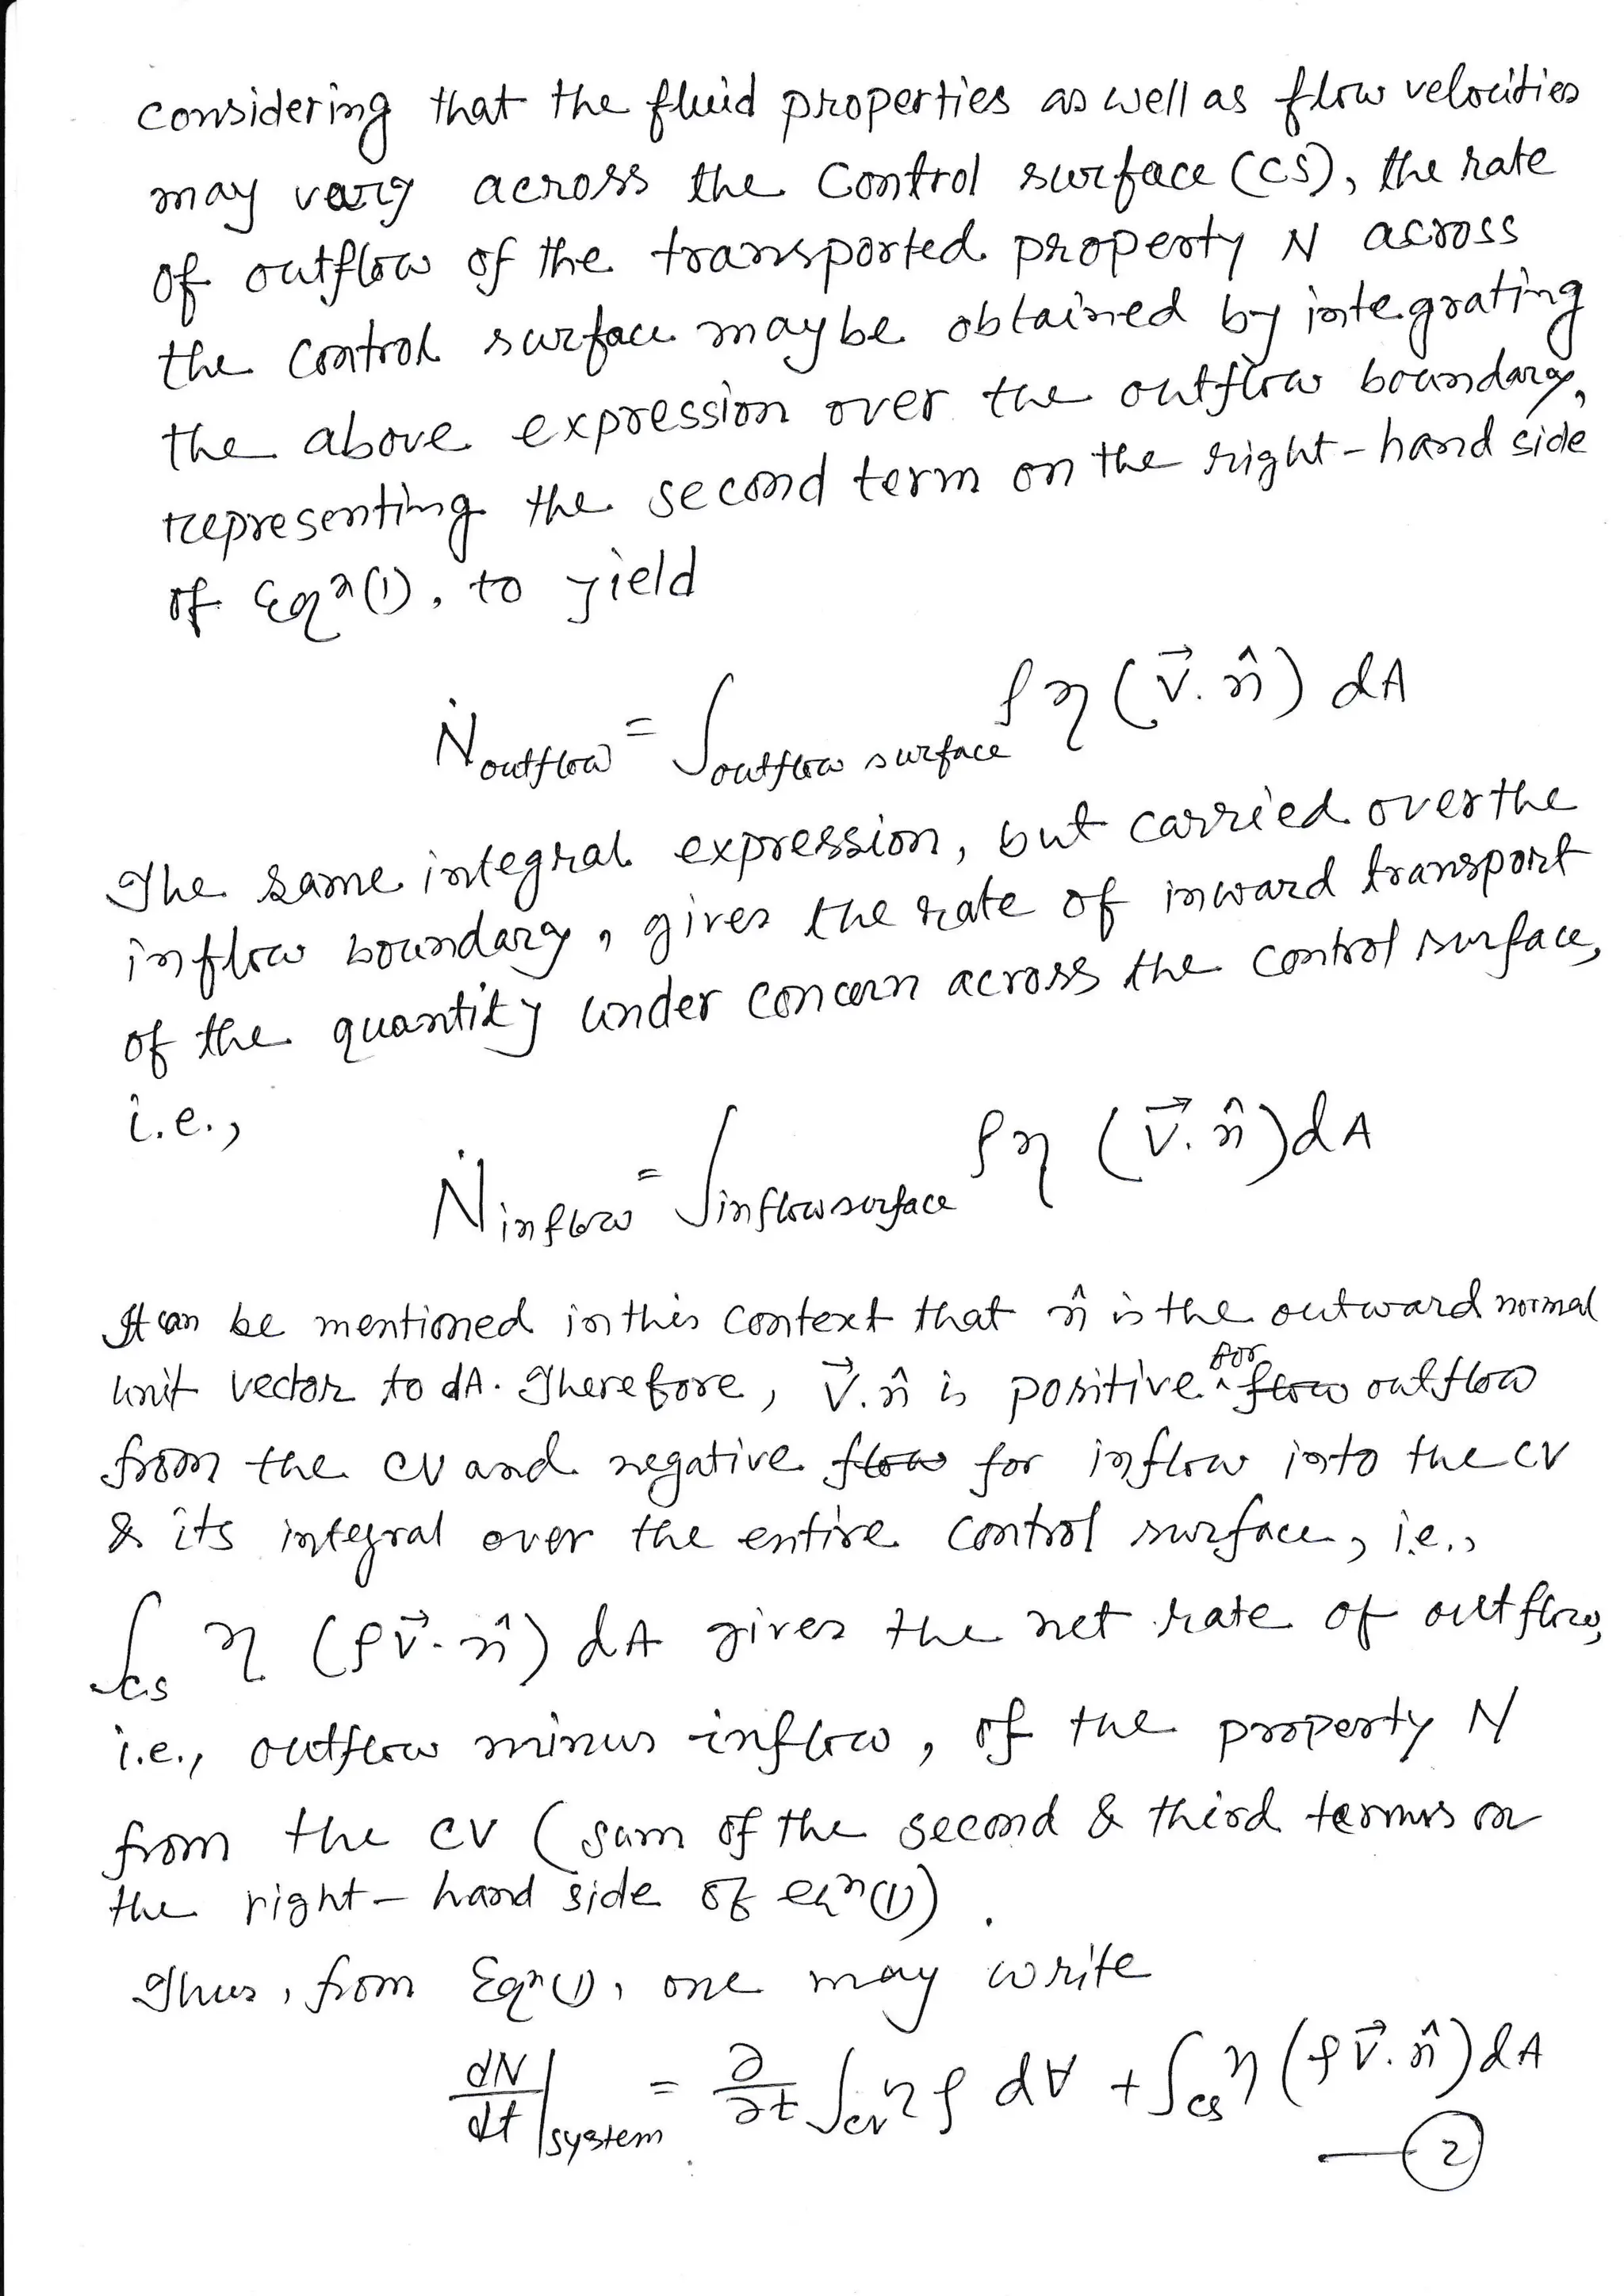 considering that the fluid properties as well as flow velocities
may vary across the Control surface (CS), the rate
of outflow of the transported property N across
the control surface may be obtained by integrating
the above expression over the outflow boundary,
representing the second term on the right-hand side
of Eqⁿ(1), to yield
Ṅ_outflow = ∫_outflow surface ρη (V⃗.n̂) dA
The same integral expression, but carried over the
inflow boundary, gives the rate of inward transport
of the quantity under concern across the control surface,
i.e.,
Ṅ_inflow = ∫_inflow surface ρη (V⃗.n̂)dA
It can be mentioned in this context that n̂ is the outward normal
unit vector to dA. Therefore, V⃗.n̂ is positive for ~~flow~~ outflow
from the CV and negative ~~flow~~ for inflow into the CV
& its integral over the entire control surface, i.e.,
∫_CS η (ρV⃗.n̂) dA gives the net rate of outflow,
i.e., outflow minus inflow, of the property N
from the CV (sum of the second & third terms on
the right-hand side of eqⁿ(1)).
Thus, from Eqⁿ(1), one may write
dN/dt|_system = ∂/∂t ∫_CV ηρ dV̶ + ∫_CS η (ρV⃗.n̂)dA
— (2)